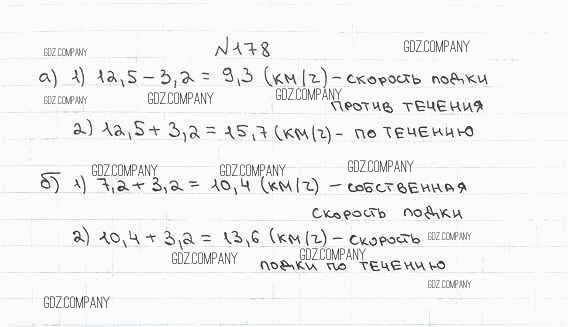 №178
GDZ.COMPANY GDZ.COMPANY
а) 1) 12,5 – 3,2 = 9,3 (км/ч) – скорость лодки
GDZ.COMPANY GDZ.COMPANY GDZ.COMPANY
против течения
2) 12,5 + 3,2 = 15,7 (км/ч) – по течению
GDZ.COMPANY GDZ.COMPANY GDZ.COMPANY
б) 1) 7,2 + 3,2 = 10,4 (км/ч) – собственная
скорость лодки
2) 10,4 + 3,2 = 13,6 (км/ч) – скорость GDZ.COMPANY
GDZ.COMPANY GDZ.COMPANY
лодки по течению
GDZ.COMPANY
GDZ.COMPANY